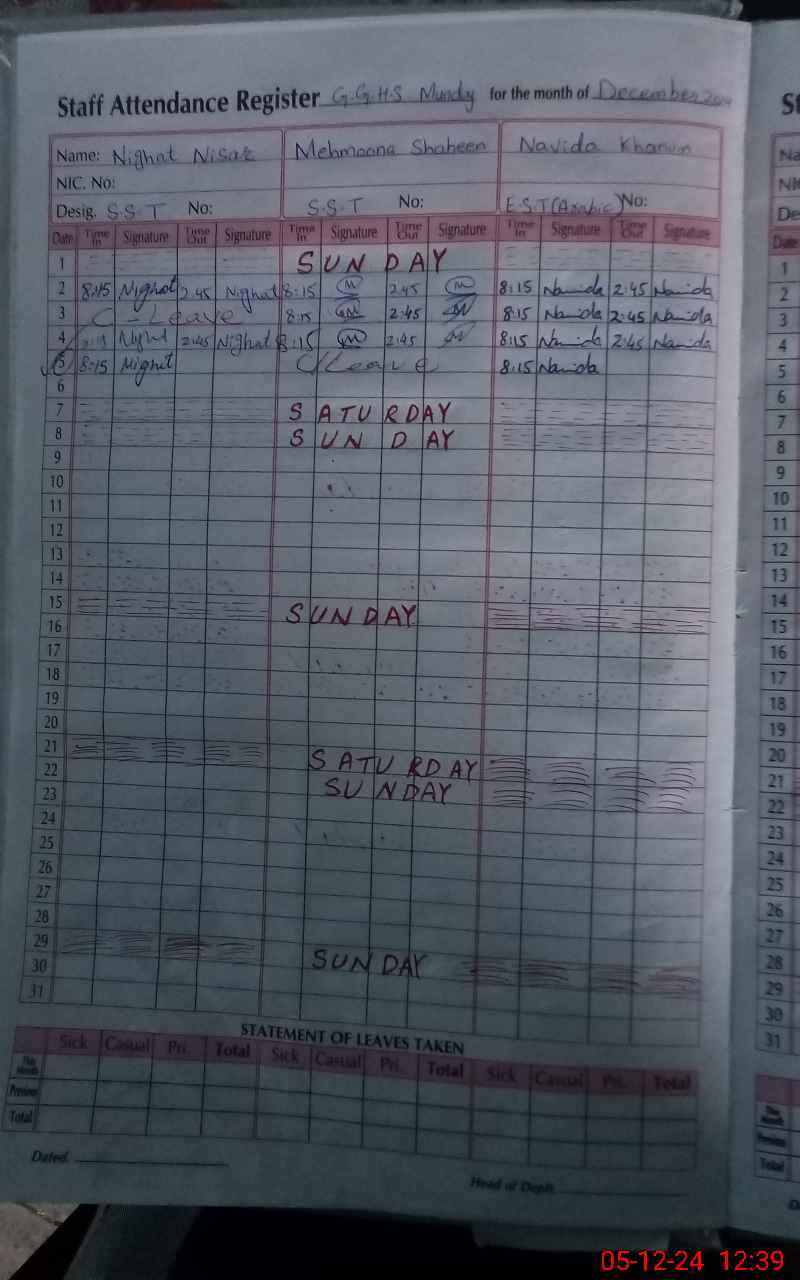 Staff Attendance Register G.G.H.S Mundy for the month of December
Name: Nighat Nisar Mehmoona Shaheen Navida Khanum
NIC. No:
Desig. S.S.T No: S.S.T No: E.S.T(Arabic) No:
Date Time In Signature Time Out Signature Time In Signature Time Out Signature Time In Signature Time Out Signature
1 SUNDAY
2 8:15 Nighat 2:45 Nighat 8:15 2:45 8:15 Navida 2:45 Navida
3 C-Leave 8:15 2:45 8:15 Navida 2:45 Navida
4 Nighat 2:45 Nighat 8:15 2:45 8:15 Navida 2:45 Navida
5 8:15 Nighat C/Leave 8:15 Navida
6
7 SATURDAY
8 SUNDAY
9
10
11
12
13
14
15 SUNDAY
16
17
18
19
20
21 SATURDAY
22 SUNDAY
23
24
25
26
27
28
29 SUNDAY
30
31
STATEMENT OF LEAVES TAKEN
Sick Casual Pri. Total Sick Casual Pri. Total Sick Casual Pri. Total
This Month
Previous
Total
Dated.
Head of Deptt.
St
Na
NI
De
Date
1
2
3
4
5
6
7
8
9
10
11
12
13
14
15
16
17
18
19
20
21
22
23
24
25
26
27
28
29
30
31
This Month
Previous
Total
D
05-12-24 12:39